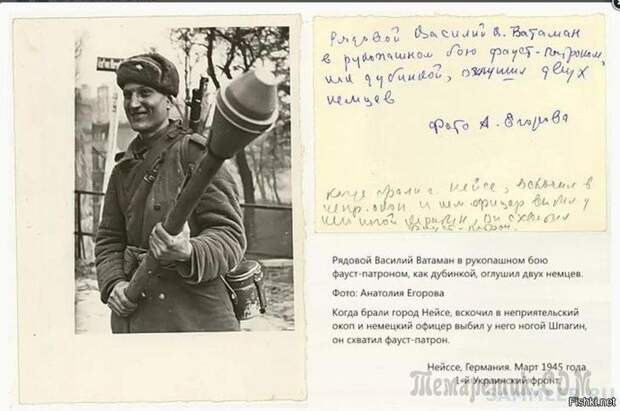 Рядовой Василий В. Ватаман
в рукопашном бою фауст-патроном,
как дубинкой, оглушил двух
немцев
Фото А. Егорова
когда брали г. Нейсе, вскочил в
непр. окоп и нем. офицер выбил у
ногой он схватил
фауст-патрон.
Рядовой Василий Ватаман в рукопашном бою
фауст-патроном, как дубинкой, оглушил двух немцев.
Фото: Анатолия Егорова
Когда брали город Нейсе, вскочил в неприятельский
окоп и немецкий офицер выбил у него ногой Шпагин,
он схватил фауст-патрон.
Нейссе, Германия. Март 1945 года
1-й Украинский фронт.
Fishki.net